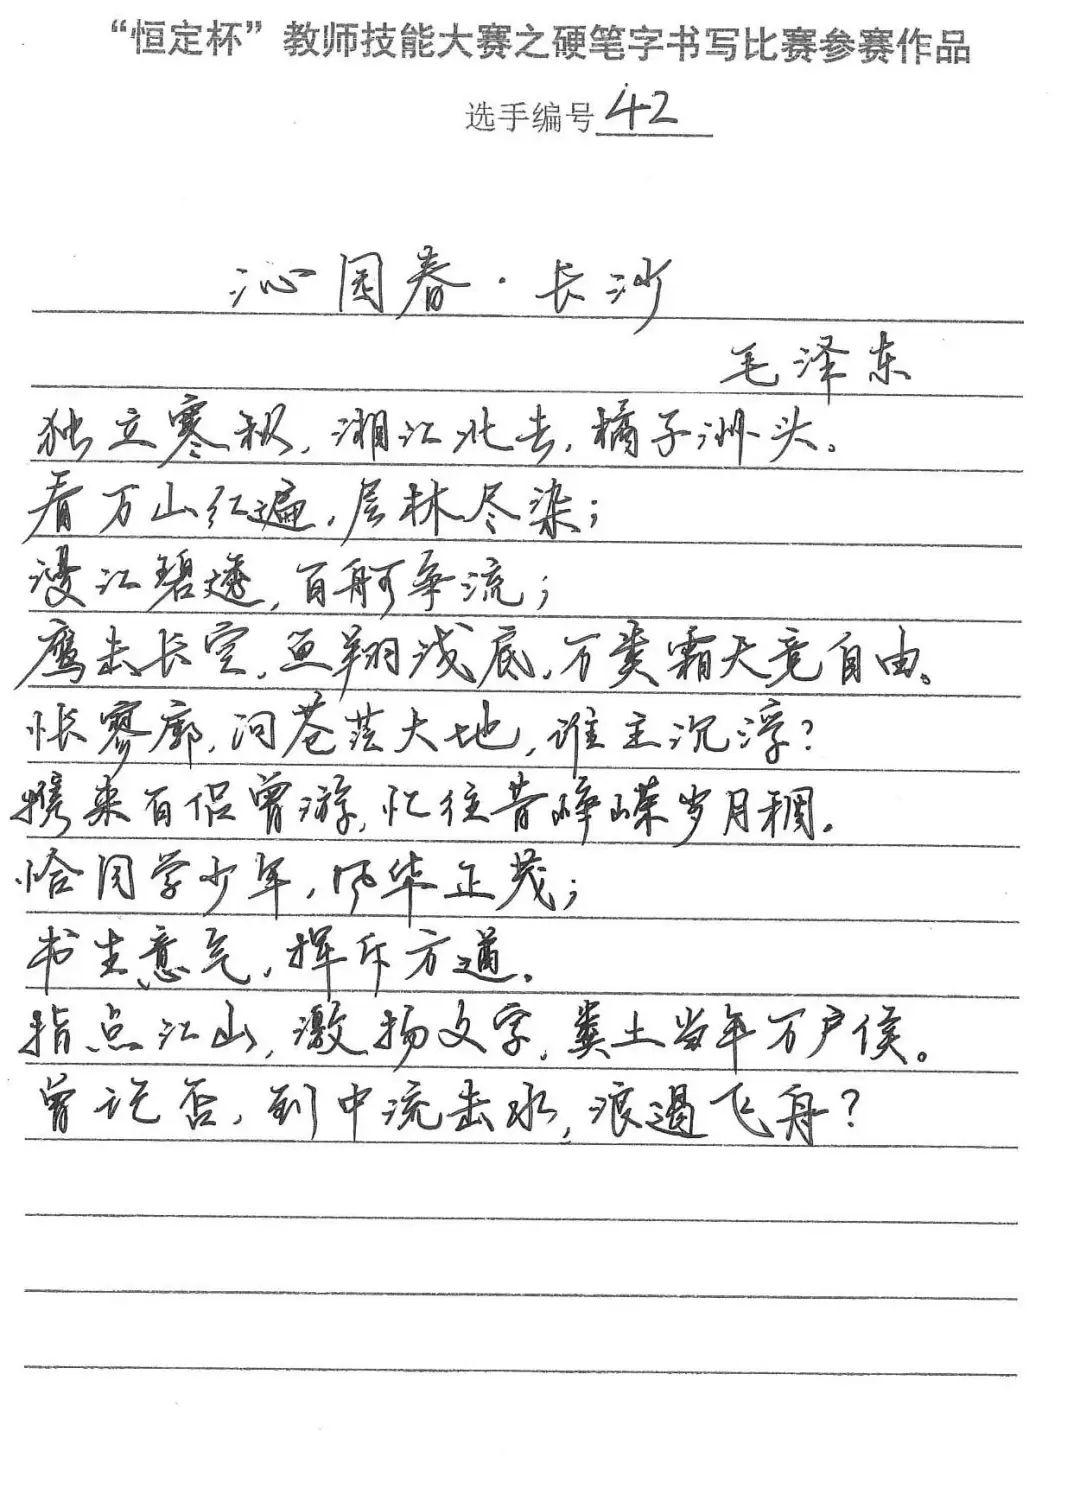 “恒定杯”教师技能大赛之硬笔字书写比赛参赛作品
选手编号42
沁园春·长沙
毛泽东
独立寒秋,湘江北去,橘子洲头。
看万山红遍,层林尽染;
漫江碧透,百舸争流;
鹰击长空,鱼翔浅底,万类霜天竞自由。
怅寥廓,问苍茫大地,谁主沉浮?
携来百侣曾游,忆往昔峥嵘岁月稠。
恰同学少年,风华正茂;
书生意气,挥斥方遒。
指点江山,激扬文字,粪土当年万户侯。
曾记否,到中流击水,浪遏飞舟?